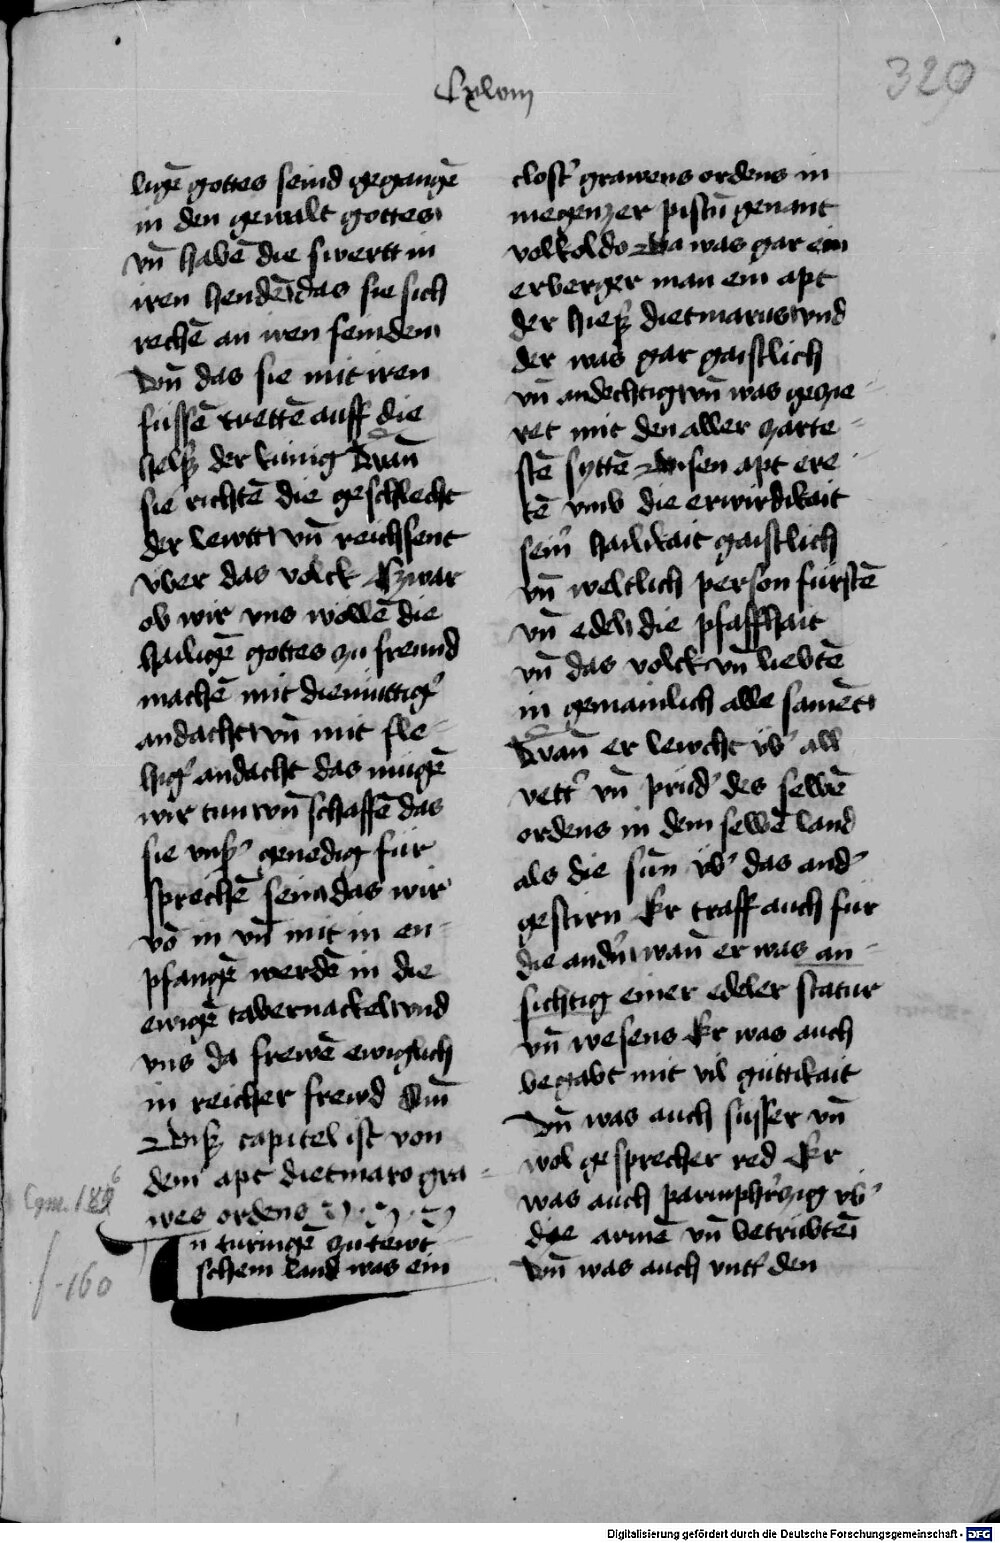 Cxlviij
320
ligē gottes seind gegangē
in den gewalt gottes
vn̄ habē die swertt in
iren hendē das sie sich
rechē an iren feinden
Vn̄ das sie mit iren
füssē trettē auff die
helß der künig Wan̄
sie richtē die geschlecht
der lewtt vn̄ reichsent
vber das volck Zwar
ob wir vns wollē die
hailigē gottes zu freund
machē mit diemuttig̉
andacht vn̄ mit fle-
hig̉ andacht das mugē
wir tun vn̄ schaffē das
sie vnß̉ genedig für
sprechē sein das wir
vō in vn̄ mit in en-
pfangē werdē in die
ewigē tabernackel vnd
vns da frewē ewiglich
in reicher frewd Am̄
Diß capitel ist von
dem apt dietmaro gra-
wes ordens
Cgm. 1886
f. 160
In turingē zu tewt
schem land was ein
clost̉ grawens ordens in
megenzer pistū genant
volkoldo Da was gar ein
erberger man ein apt
der hieß dietmarus vnd
der was gar gaistlich
vn̄ andechtig vn̄ was gezie-
ret mit den aller zarte-
stē syttē Disen apt ere-
tē vmb die erwirdikait
sein̉ hailikait gaistlich
vn̄ weltlich person fürstē
vn̄ edel die pfaffhait
vn̄ das volck vn̄ liebtē
in gemainlich alle samēt
Wan̄ er lewcht üb̉ all
vett̉ vn̄ prüd̉ des selbē
ordens in dem selbē land
als die sun̄ üb̉ das and̉
gestirn Er traff auch für
die andn̉ wan̄ er was an-
sichtig einer edeler statur
vn̄ wesens Er was auch
begabt mit vil güttikait
Vn̄ was auch susser vn̄
wol gesprecher red Er
was auch parmh̉zig üb̉
die armē vn̄ betrübtē
Vn̄ was auch vnt̉ den
Digitalisierung gefördert durch die Deutsche Forschungsgemeinschaft - DFG